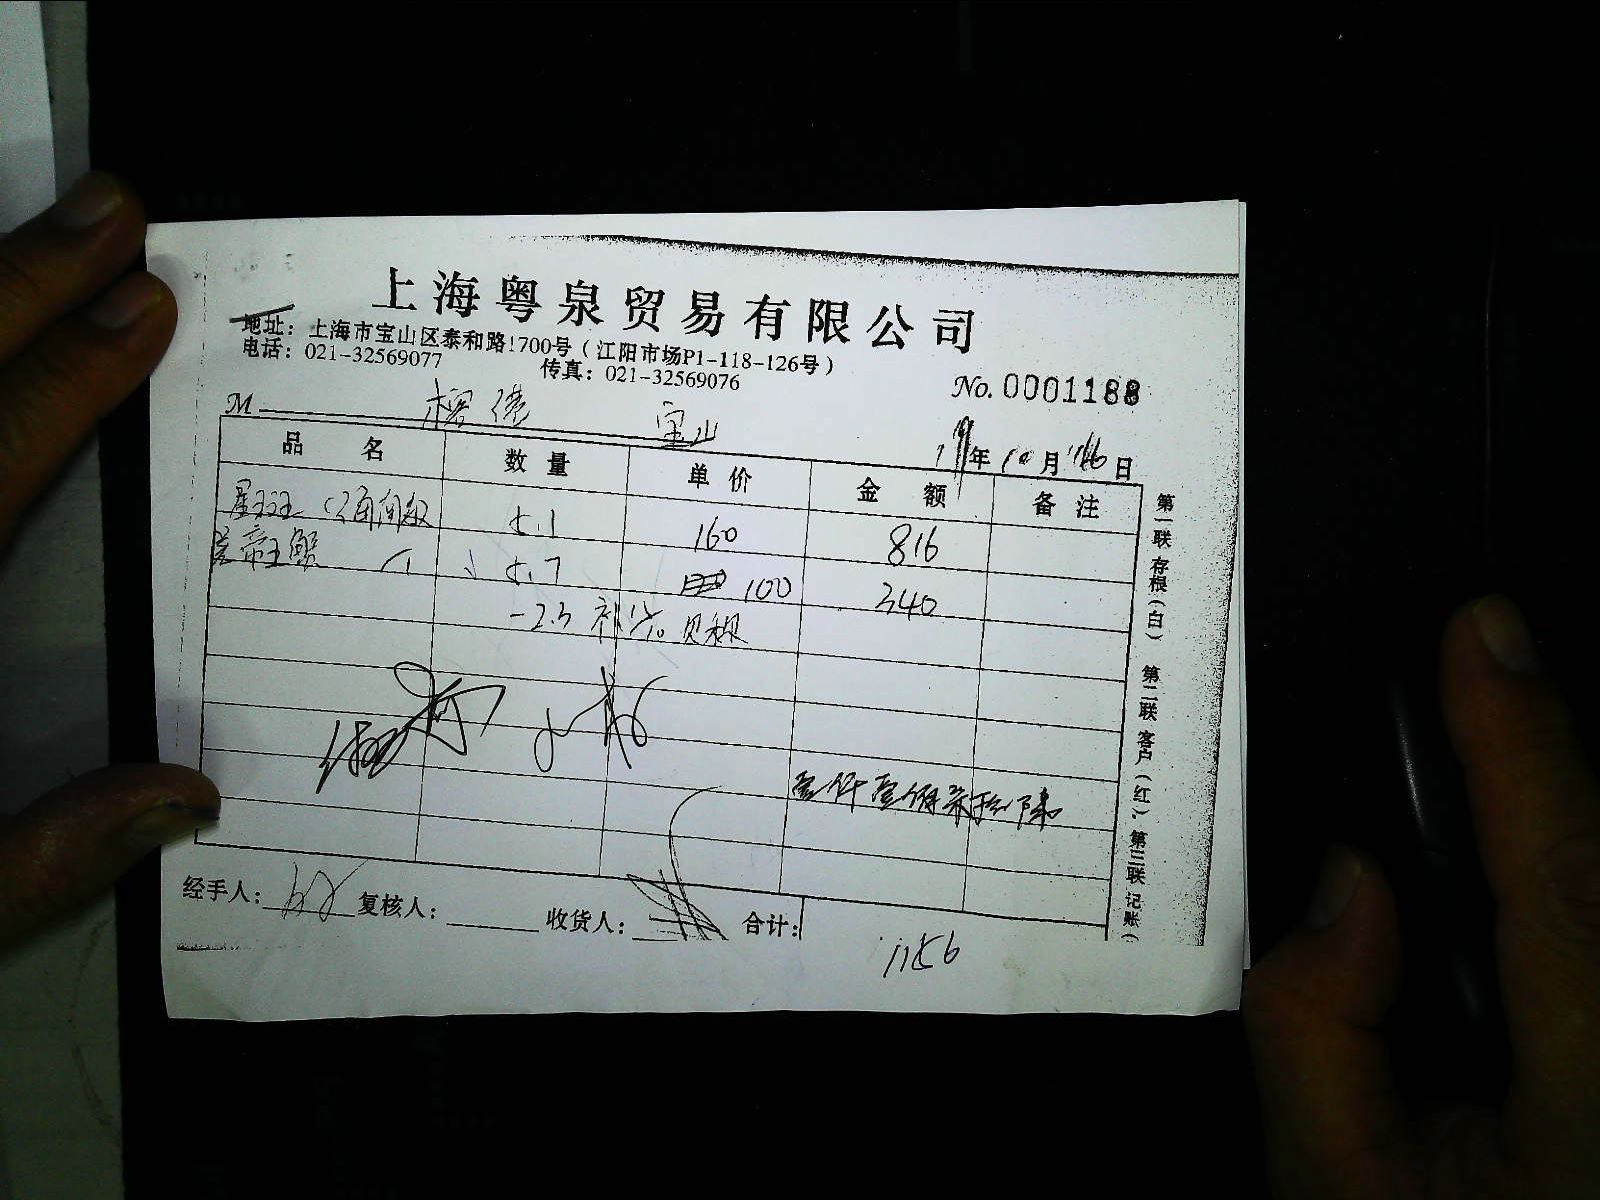 上海粤泉贸易有限公司
地址：上海市宝山区泰和路1700号（江阳市场P1-118-126号）
电话：021-32569077 传真：021-32569076
No. 0001188
M 宝山
17年10月16日
品名 数量 单价 金额 备注
星斑 5.1 160 816
帝王蟹 5.7 100 340
-2.3 补
经手人： 复核人： 收货人： 合计：
1156
第一联 存根（白） 第二联 客户（红）， 第三联 记账（